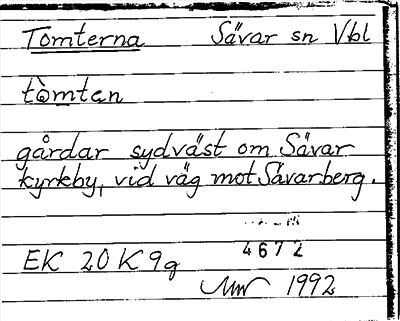 Tomterna Sävar sn Vbl
tòmtan
gårdar sydväst om Sävar
kyrkby, vid väg mot Sävarberg.
4672
EK 20K9g
1992